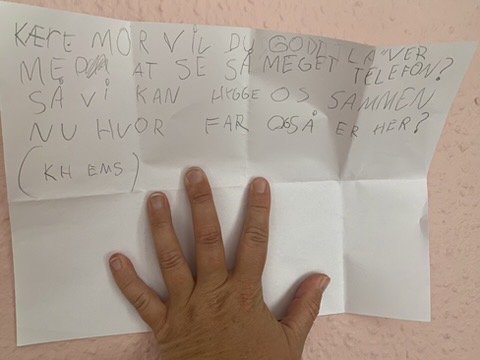 KÆRE MOR VIL DU GODT LAVER
MED AT SE SÅ MEGET TELEFON?
SÅ VI KAN HYGGE OS SAMMEN
NU HVOR FAR OGSÅ ER HER?
(KH EMS)